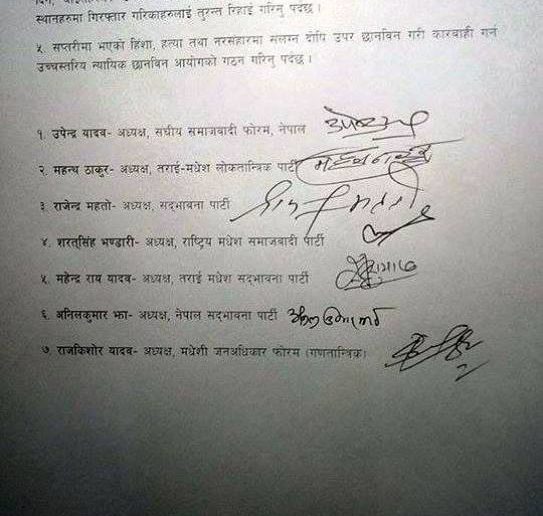 स्थानहरुमा गिरफ्तार गरिकाहरुलाई तुरन्त रिहाई गरिनु पर्दछ ।
५ सप्तरीमा भएको हिंशा, हत्या तथा नरसंहारमा सलग्न दोषि उपर छानविन गरी कारवाही गर्न
उच्चस्तरिय न्यायिक छानविन आयोगको गठन गरिनु पर्दछ ।
१. उपेन्द्र यादव- अध्यक्ष, संघीय समाजवादी फोरम, नेपाल
२. महन्थ ठाकुर- अध्यक्ष, तराई-मधेश लोकतान्त्रिक पार्टी
३ राजेन्द्र महतो- अध्यक्ष, सद्भावना पार्टी
४. शरत्सिंह भण्डारी- अध्यक्ष, राष्ट्रिय मधेश समाजवादी पार्टी
५ महेन्द्र राय यादव- अध्यक्ष, तराई मधेश सद्भावना पार्टी
६. अनिलकुमार झा- अध्यक्ष, नेपाल सद्भावना पार्टी
७. राजकिशोर यादव- अध्यक्ष, मधेशी जनअधिकार फोरम (गणतान्त्रिक)